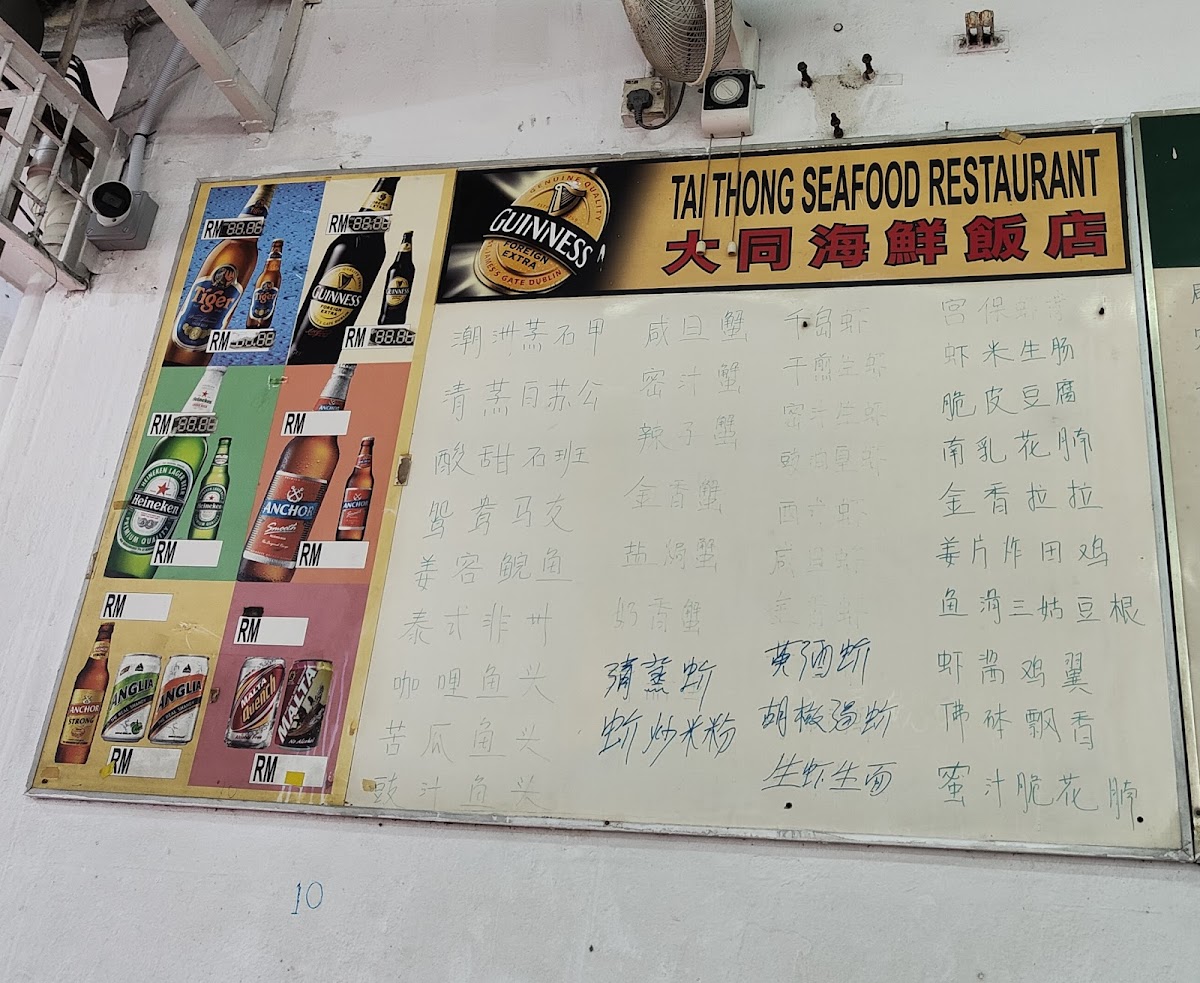 TAI THONG SEAFOOD RESTAURANT
大同海鮮飯店
GENUINE QUALITY
GUINNESS
FOREIGN EXTRA
ST. JAMES'S GATE DUBLIN
RM 88.86
RM 88:86
Tiger
Tiger
GUINNESS
GUINNESS
RM 88.86
RM 88.86
RM 88.86
RM
Heineken
Heineken
ANCHOR
Smooth
ANCHOR
RM
RM
RM
RM
ANCHOR
STRONG
ANGLIA
ANGLIA
MALTA
Quench
MALTA
RM
RM
潮洲蒸石甲
青蒸白苏公
酸甜石班
鸳鸯马友
姜容鲩鱼
泰式非卅
咖哩鱼头
苦瓜鱼头
豉汁鱼头
咸旦蟹
密汁蟹
辣子蟹
金香蟹
盐焗蟹
奶香蟹
清蒸蚧
蚧炒米粉
千岛虾
干煎生虾
密汁生虾
咸旦虾
黄酒蚧
胡椒焗蚧
生虾生面
宫保
虾米生肠
脆皮豆腐
南乳花腩
金香拉拉
姜片炸田鸡
鱼滑三姑豆根
虾酱鸡翼
佛砵飘香
蜜汁脆花腩
10